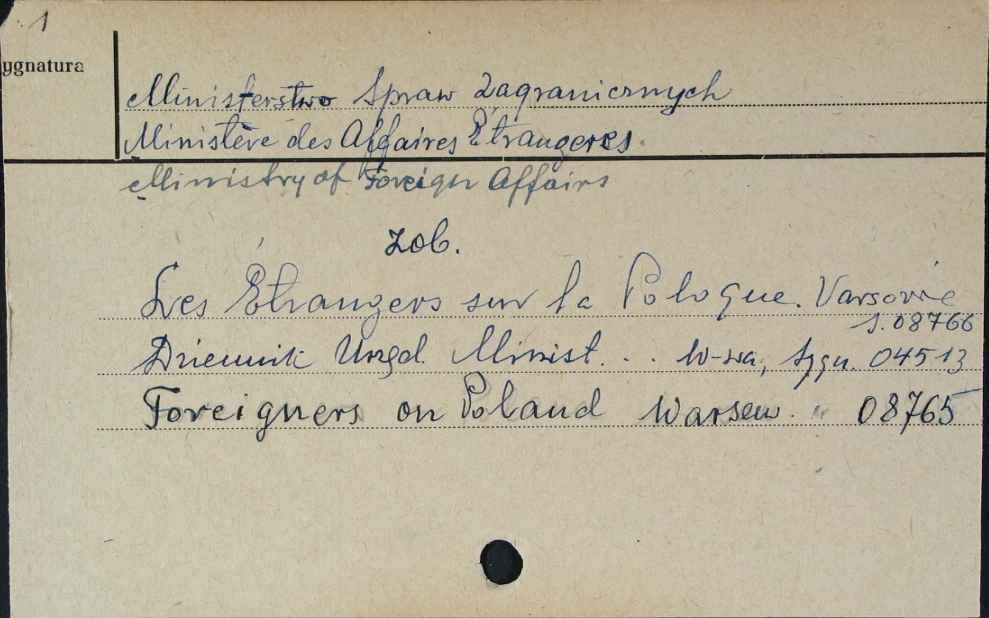 1
ygnatura
Ministerstwo Spraw Zagranicznych
Ministère des Affaires Etrangeres.
Ministry of Foreign Affairs
zob.
Les Étrangers sur la Pologne. Varsovie
S. 08766
Dziennik Urzęd. Minist. .. W-wa, Sygn. 04513
Foreigners on Poland Warsaw. " 08765